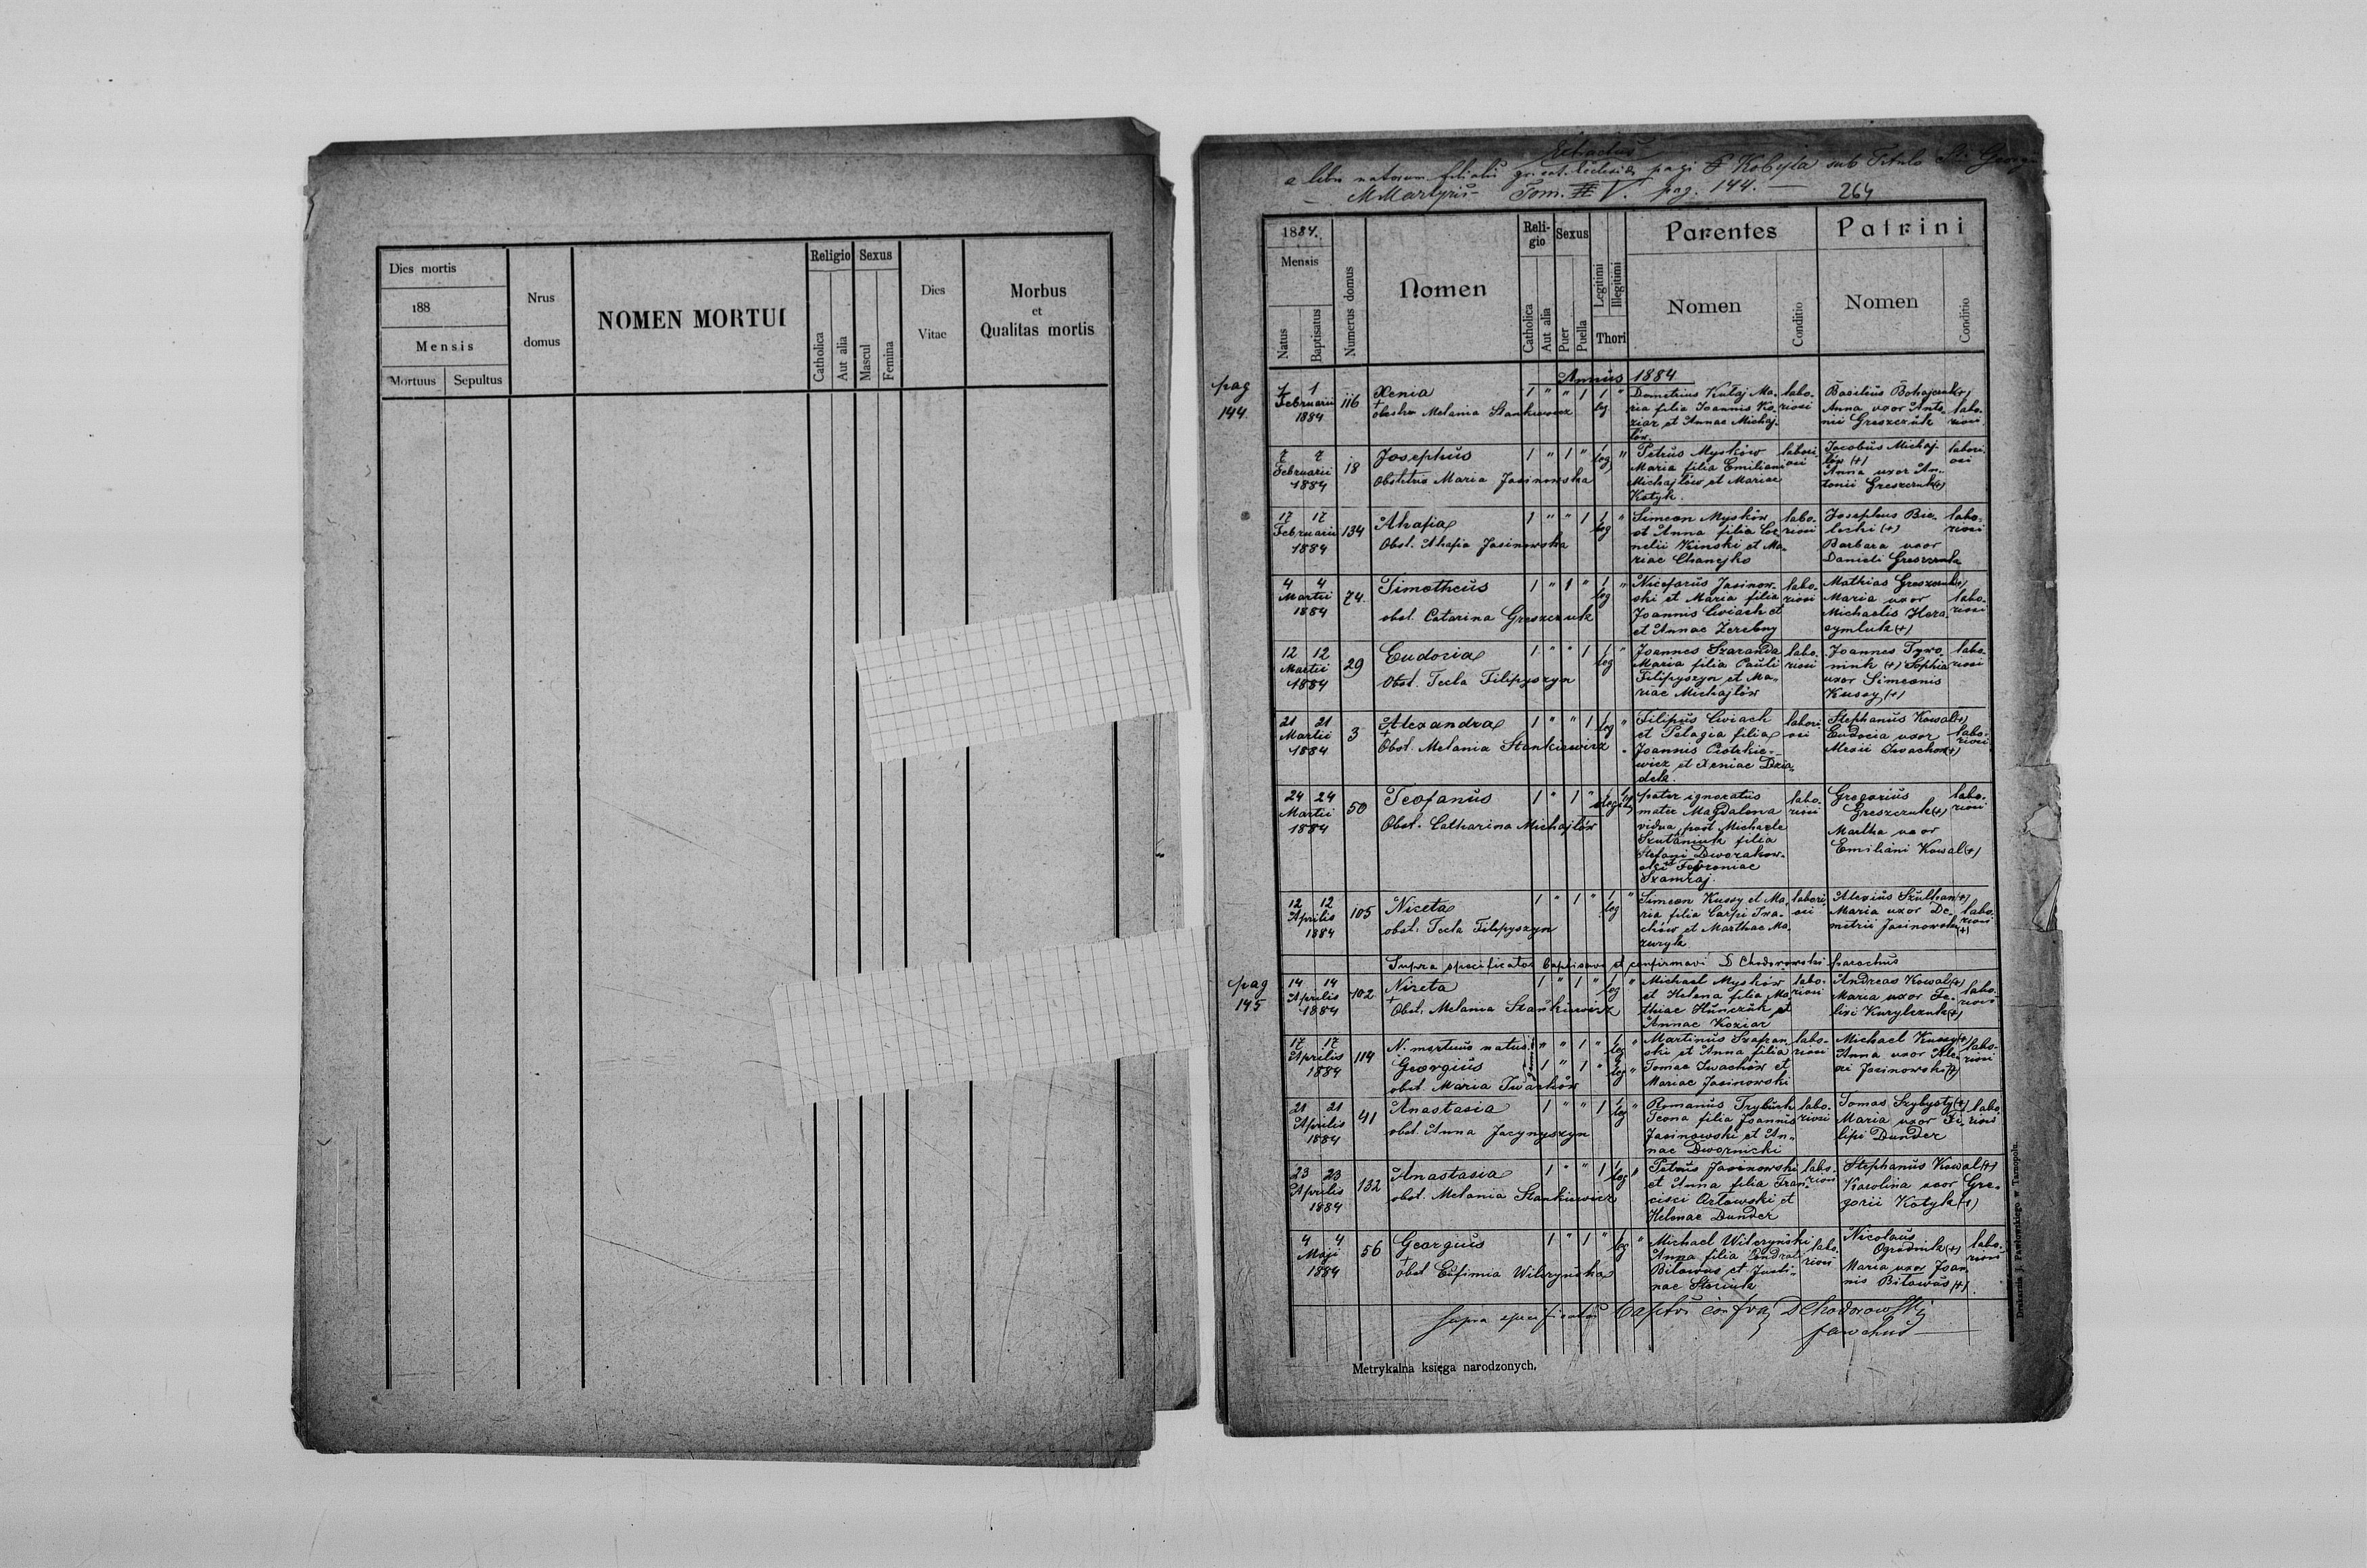 Dies mortis
188
Mensis
Mortuus Sepultus
Nrus
domus
NOMEN MORTUI
Religio Sexus
Catholica
Aut alia
Mascul
Femina
Dies
Vitae
Morbus
et
Qualitas mortis
Extractus
a libro natorum filialis gr. cat. Ecclesiae pagi Kobyla sub Titulo St. Georgii
M Martyris Tom. V. pag. 144.
264
1884.
Mensis
Natus
Baptisatus
Numerus domus
Nomen
Reli-
gio
Catholica
Aut alia
Sexus
Puer
Puella
Legitimi
Illegitimi
Thori
Parentes
Nomen
Conditio
Patrini
Nomen
Conditio
Annus 1884
pag
144
1 Februarii
1884
116
Xenia
Melania Stankiewicz
1 " " 1 1 "
leg
Demetrius Kutaj Ma-
ria filia Joannis Ko-
ziar et Annae Michaj-
lów.
labo-
riosi
Basilius
Anna uxor Anto-
nii Greszczuk
labo-
riosi
7 7
Februarii
1884
18
Josephus
Obstetrix Maria Jasinowska
1 " 1 " 1 "
leg
Petrus Myskow
Maria filia Emiliani
Michajlów et Mariae
Kotyk.
labori
osi
Jacobus Michaj-
lów (+)
Anna uxor An-
tonii Greszczuk (+)
labori
osi
17 17
Februarii
1884
134
Ahafia
Obst. Ahafia Jasinowska
1 " " 1 1 "
leg
Simeon Myskow
et Anna filia Cor
nelii Kinski et Ma-
riae Chanejko
labo-
riosi
Josephus Bie-
lecki (+)
Barbara uxor
Danieli Greszczuk
labo-
riosi
4 4
Martii
1884
74.
Timotheus
obst. Catarina Greszczuk
1 " 1 " 1 "
leg
Niceforus Jasinow-
ski et Maria filia
Joannis Cwiach et
et Annae Zerebny
labo-
riosi
Mathias Greszczuk (+)
Maria uxor
Michaelis Hera-
symluk (+)
labo-
riosi
12 12
Martii
1884
29
Eudoxia
Obst. Tecla Filipyszyn
1 " " 1 1 "
leg
Joannes Szaranda
Maria filia Pauli
Filipyszyn et Ma-
riae Michajlów
labo-
riosi
Joannes Tywo-
niuk (+) Sophia
uxor Simeonis
Kussy (+)
labo-
riosi
21 21
Martii
1884
3
Alexandra
Obst. Melania Stankiewicz
1 " " 1 1 "
leg
Filipus Cwiach
et Pelagia filia
Joannis Piotrkie-
wicz et Xeniae Dzia-
dek.
labori
osi
Stephanus Kowal (+)
Eudocia uxor
Alexii Iwachow (+)
labo-
riosi
24 24
Martii
1884
50
Teofanus
Obst. Catharina Michajlów
1 " 1 "
pater ignoratus
mater Magdalena
vidua post Michaele
filia
Stefani Dworakow-
ski
Szamraj.
labo-
riosi
Gregorius
Greszczuk (+)
Martha uxor
Emiliani Kowal (+)
labo-
riosi
12 12
Aprilis
1884
105
Niceta
obst. Tecla Filipyszyn
1 " 1 " 1 "
leg
Simeon Kussy et Ma-
ria filia Carpi Iwa-
chów et Marthae Ma-
zuryk
labori-
osi
Alexius Szulhan (+)
Maria uxor De-
metrii Jasinowski (+)
labo-
riosi
Supra specificatos baptisavi et confirmavi D Chodorowski parochus
pag
145
14 14
Aprilis
1884
102
Niceta
Obst. Melania Stankiewicz
1 " 1 " 1 "
leg
Michael Myskow
et Helena filia Ma-
thiae Hunczak et
Annae Koziar
labo-
riosi
Andreas Kowal (+)
Maria uxor Fe-
lixi Kurylczuk (+)
labo-
riosi
17 17
Aprilis
1884
114
N. mortuus natus
Georgius
obst. Maria Iwachów
" " 1 " 1 "
leg
1 " 1 " 1 "
leg
Martinus Szafran-
ski et Anna filia
Tomae Iwachów et
Mariae Jasinowski
labo-
riosi
Michael Kussy (+)
Anna uxor Ale-
xi Jasinowski (+)
labo-
riosi
21 21
Aprilis
1884
41
Anastasia
obst. Anna Jacynyszyn
1 " " 1 1 "
leg
Romanus Trybuch
Teona filia Joannis
Jasinowski et An-
nae Dwornicki
labo-
riosi
Tomas Szybysty (+)
Maria uxor Fi-
lipi Dunder
labo
riosi
23 23
Aprilis
1884
132
Anastasia
obst. Melania Stankiewicz
1 " " 1 1 "
leg
Petrus Jasinowski
et Anna filia Fran-
cisci Orlowski et
Helenae Dunder
labo-
riosi
Stephanus Kowal (+)
Karolina uxor Gre-
gorii Kotyk (+)
4 4
Maji
1884
56
Georgius
obst Eufimia Wilczynska
1 " 1 " 1 "
leg
Michael Wilczynski
Anna filia Condrati
Bilowus et Justi-
nae
labo-
riosi
Nicolaus
Ogrodnik (+)
Maria uxor Joan-
nis Bilowus (+)
labo-
riosi
Supra specificatos baptisavi confirmavi D Chodorowski
parochus
Metrykalna księga narodzonych.
Drukarnia J. Pawłowskiego w Tarnopolu.